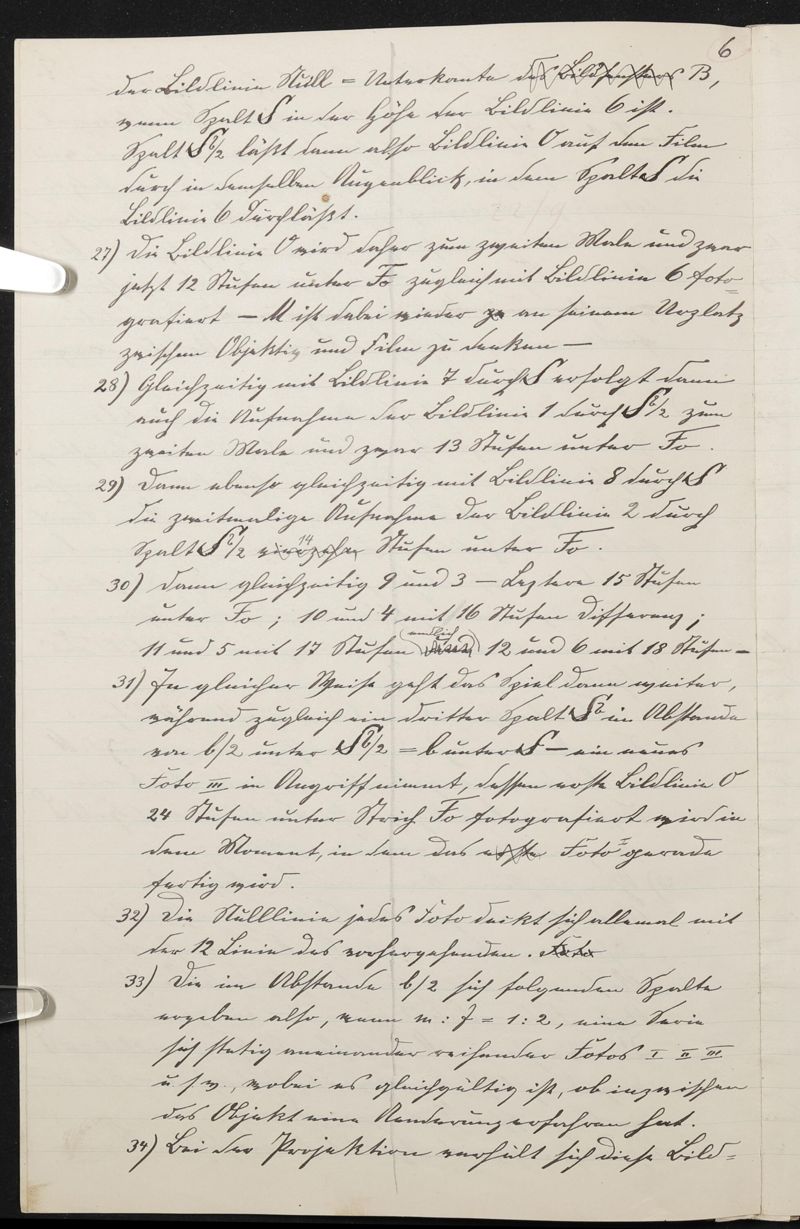 6
der Bildlinie Null = Unterkante des Bildfensters B,
wenn Spalt S in der Höhe der Bildlinie 6 ist.
Spalt S b/2 läßt dann also Bildlinie 0 auf den Film
durch in demselben Augenblick, in dem Spalte S die
Bildlinie 6 durchläßt.
27) Die Bildlinie 0 wird daher zum zweiten Male und zwar
jetzt 12 Stufen unter Fo zugleich mit Bildlinie 6 foto-
grafiert — M ist dabei wieder an seinem Urplatz
zwischen Objektiv und Film zu denken —
28) Gleichzeitig mit Bildlinie 7 durch S erfolgt dann
auch die Aufnahme der Bildlinie 1 durch S b/2 zum
zweiten Male und zwar 13 Stufen unter Fo.
29) Dann ebenso gleichzeitig mit Bildlinie 8 durch S
die zweitmalige Aufnahme der Bildlinie 2 durch
Spalt S b/2 vierzehn 14 Stufen unter Fo.
30) Dann gleichzeitig 9 und 3 — Leztere 15 Stufen
unter Fo; 10 und 4 mit 16 Stufen Differenz;
11 und 5 mit 17 Stufen endlich 12 und 6 mit 18 Stufen —
31) In gleicher Weise geht das Spiel dann weiter,
während zugleich ein dritter Spalt S b im Abstande
von b/2 unter S b/2 = b unter S — ein neues
Foto III in Angriff nimmt, dessen erste Bildlinie 0
24 Stufen unter Strich Fo fotografiert wird in
dem Moment, in dem das erste Foto I gerade
fertig wird.
32) Die Nulllinie jedes Foto deckt sich allemal mit
der 12 Linie des vorhergehenden. Foto
33) Die im Abstande b/2 sich folgenden Spalte
ergeben also, wenn m : f = 1 : 2, eine Serie
sich stetig aneinander reihender Fotos I II III
u. s. w., wobei es gleichgültig ist, ob inzwischen
das Objekt eine Aenderung erfahren hat.
34) Bei der Projektion verhält sich diese Bild-